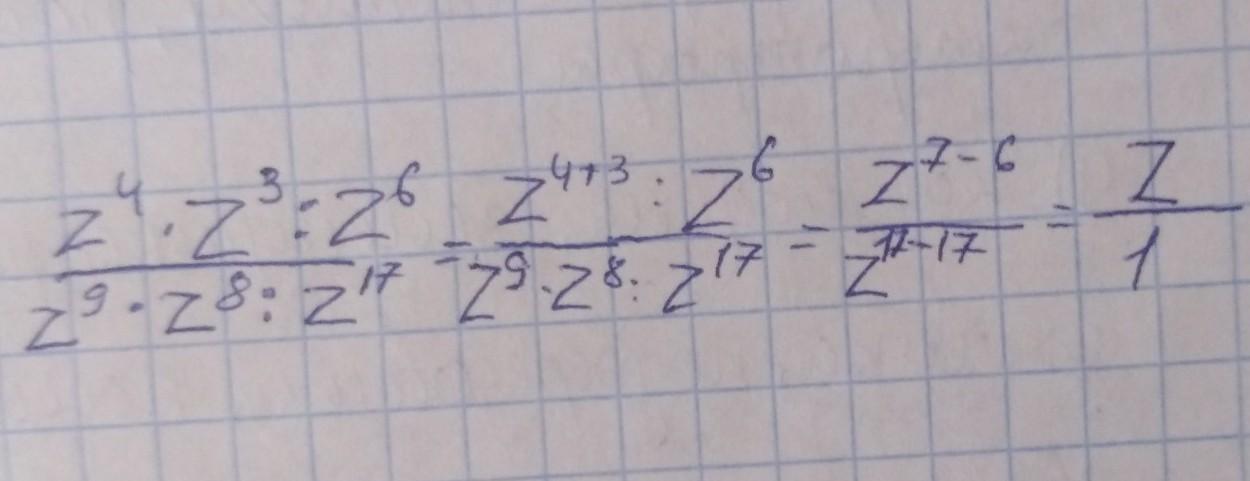 z⁴ · z³ : z⁶ / z⁹ · z⁸ : z¹⁷ = z⁴⁺³ : z⁶ / z⁹ · z⁸ : z¹⁷ = z⁷⁻⁶ / z¹⁷⁻¹⁷ = z / 1